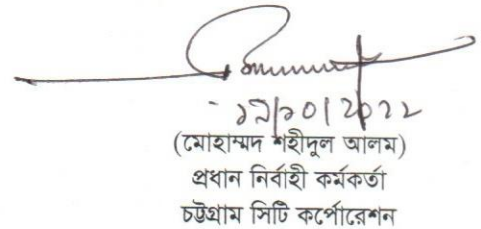 ১৯/১০/2022
(মোহাম্মদ শহীদুল আলম)
প্রধান নির্বাহী কর্মকর্তা
চট্টগ্রাম সিটি কর্পোরেশন